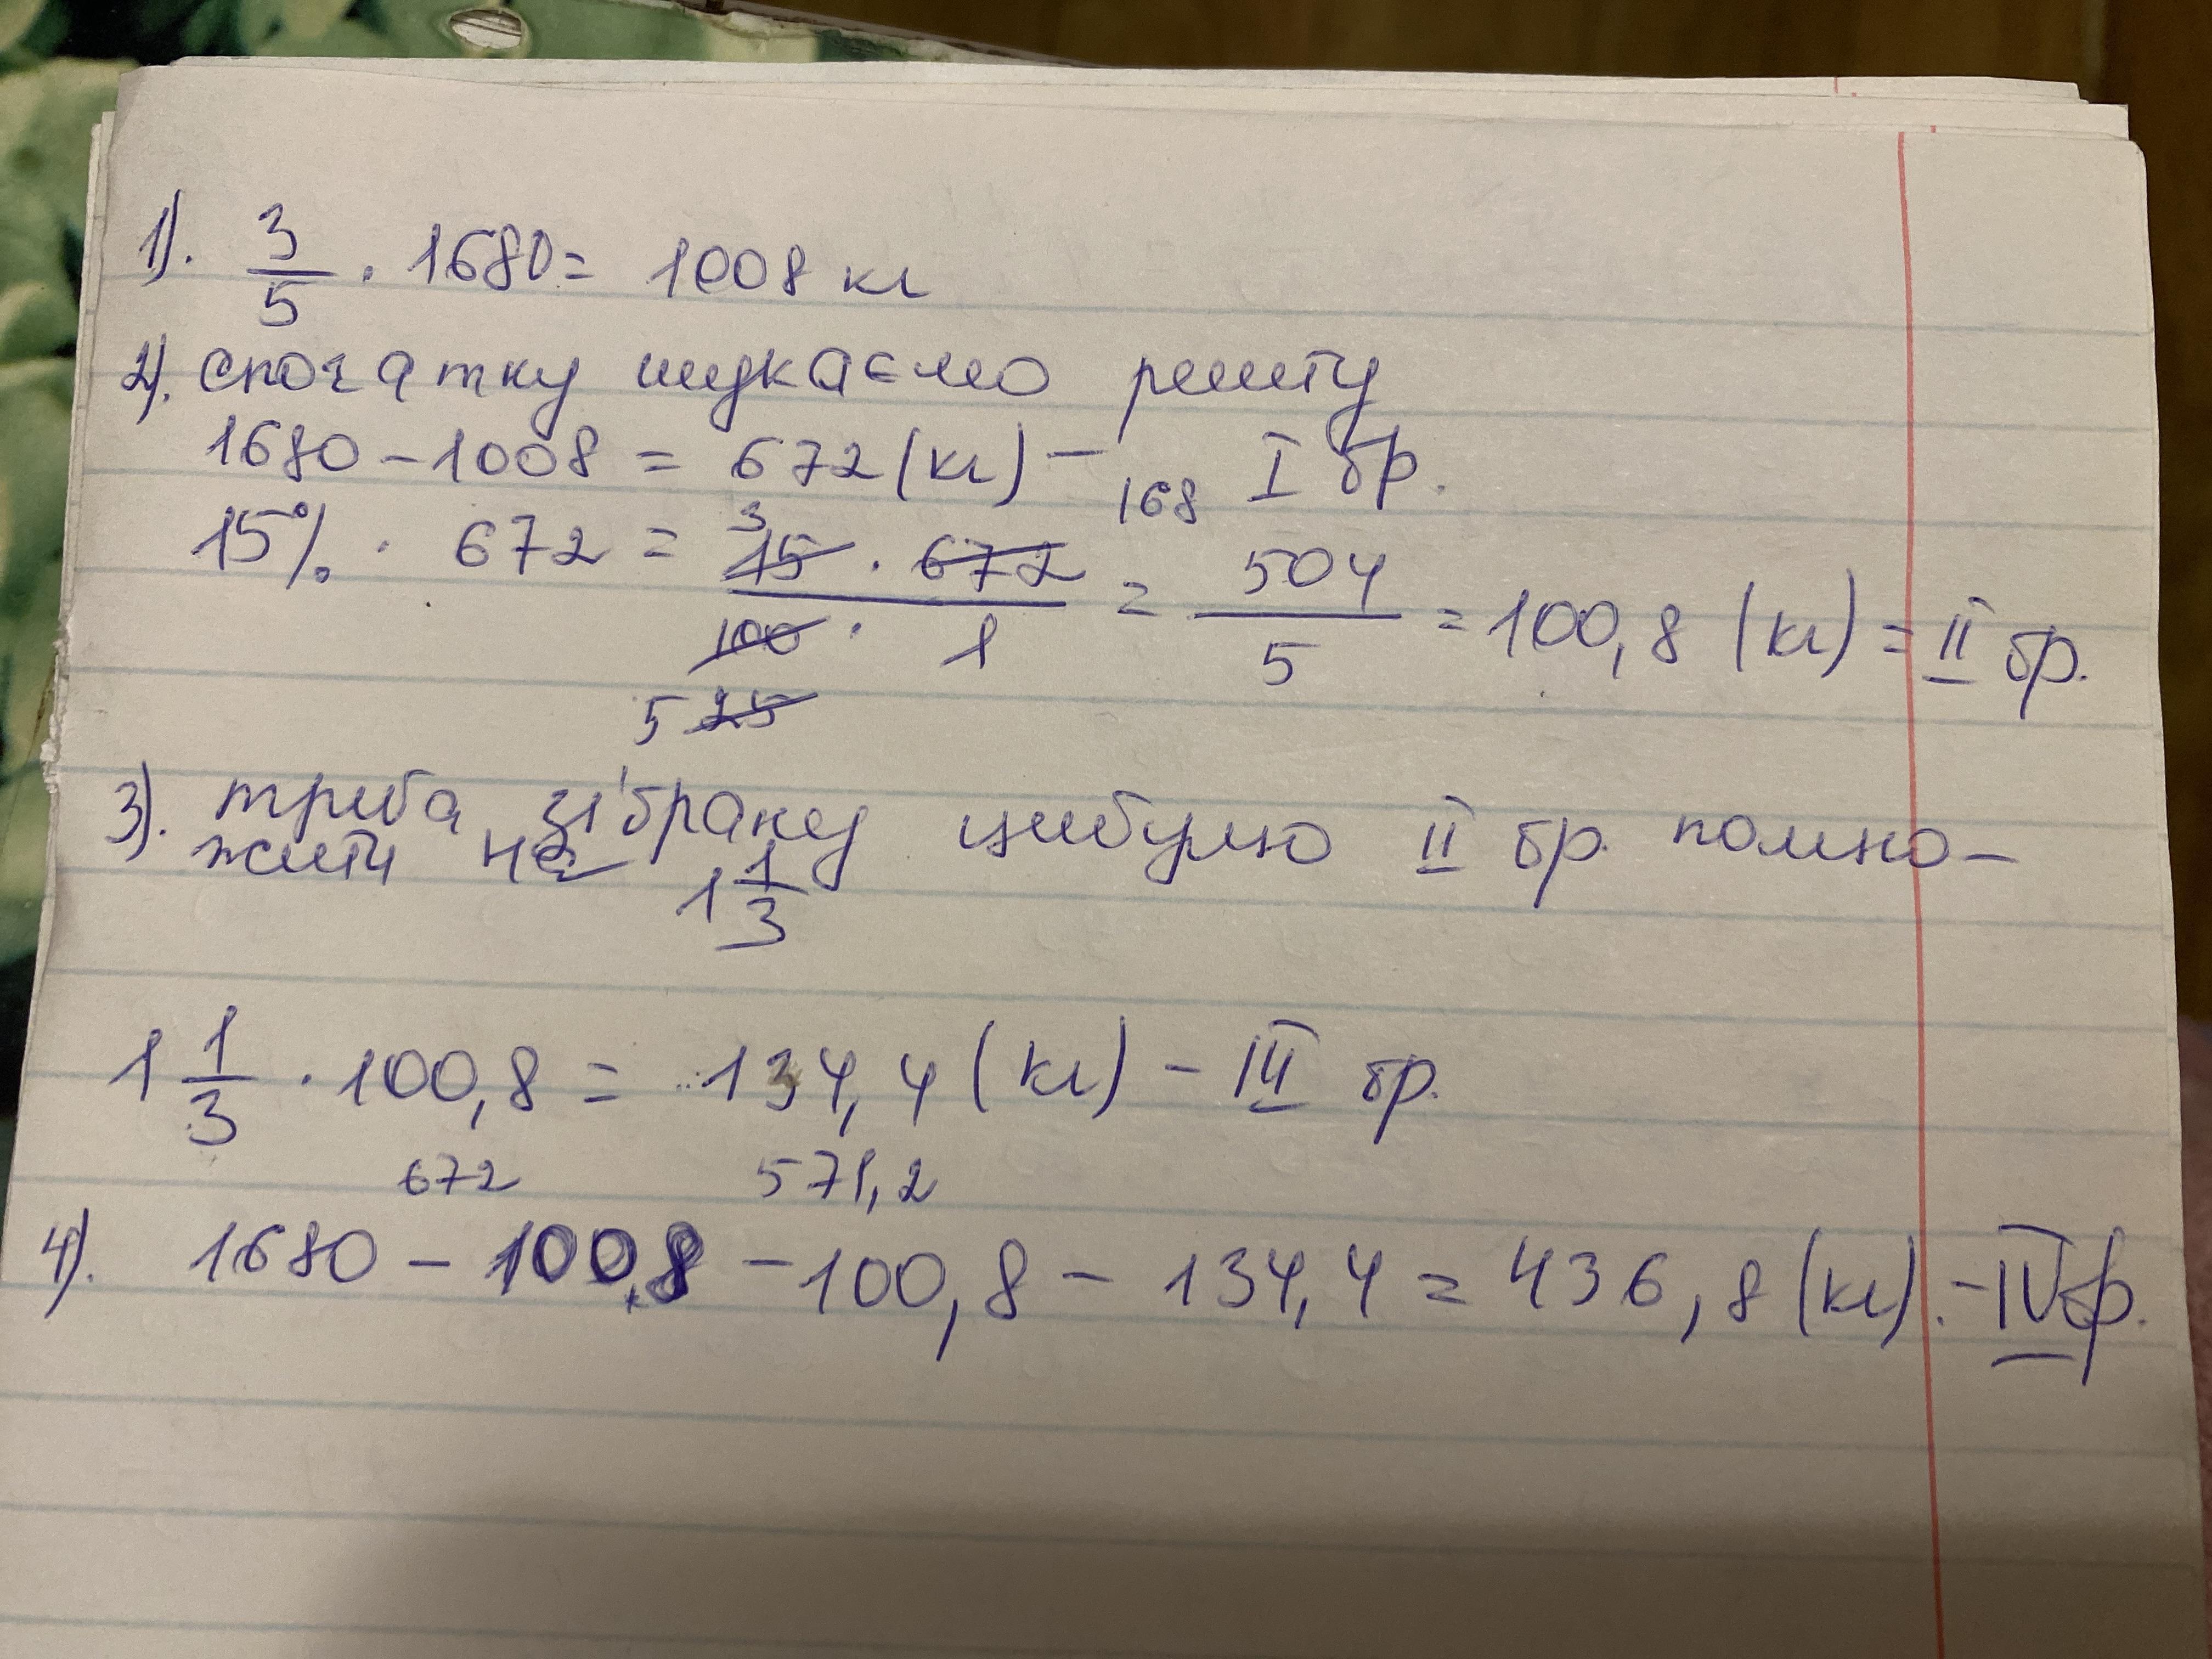 1). 3/5 · 1680 = 1008 кг
2). спочатку шукаємо решту
1680 - 1008 = 672 (кг) - I бр.
168
15% · 672 = 3 15 · 672 / 100 · 1 = 504/5 = 100,8 (кг) = II бр.
5 25
3). треба зібрану цибулю II бр. помно-
жити на 1 1/3
1 1/3 · 100,8 = 134,4 (кг) - III бр.
672 571,2
4). 1680 - 100,8 - 100,8 - 134,4 = 436,8 (кг). - IV бр.